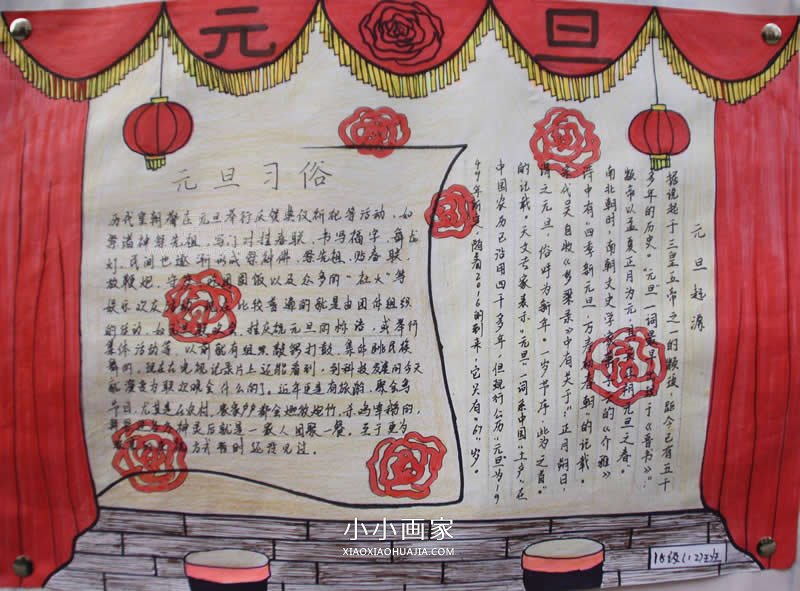 元旦
元旦习俗
历代皇朝都在元旦举行庆贺典仪祈祀等活动，如
祭诸神祭先祖，写门对挂春联，书写福字、舞龙
灯，民间也逐渐形成祭神佛、祭先祖、贴春联、
放鞭炮、守岁、吃团圆饭以及众多的“社火”等
娱乐欢庆 比较普遍的就是由团体组织
的活动，如元旦 挂庆祝元旦的标语，或举行
集体活动等，以前就有组织敲锣打鼓、集体跳民族
舞的，现在在电视记录片上还能看到，到科技发展的今天
就演变为联欢晚会什么的了。近年更是有旅游、聚会等
节日，尤其是在农村，家家户户都会燃放炮竹，杀鸡宰鹅的，
后就是一家人团聚一餐。至于更为
方式暂时还没见过。
元旦起源
据说起于三皇五帝之一的颛顼，距今已有五千
多年的历史。“元旦”一词最早出现于《晋书》：
“颛帝以孟夏正月为元 朔元旦之春。”
南北朝时，南朝文史学家 的《介雅》
诗中有“四季新元旦，万寿 朝”的记载。
宋代吴自牧《梦粱录》中有关于“正月朔日，
谓之元旦，俗呼为新年。一岁节序，此为之首”
的记载。天文专家表示“元旦”一词系中国“土产”，在
中国农历已沿用四千多年，但现行公历“元旦”为19
49年 ，随着2016的到来，它只有 “岁”。
小小画家
XIAOXIAOHUAJIA.COM